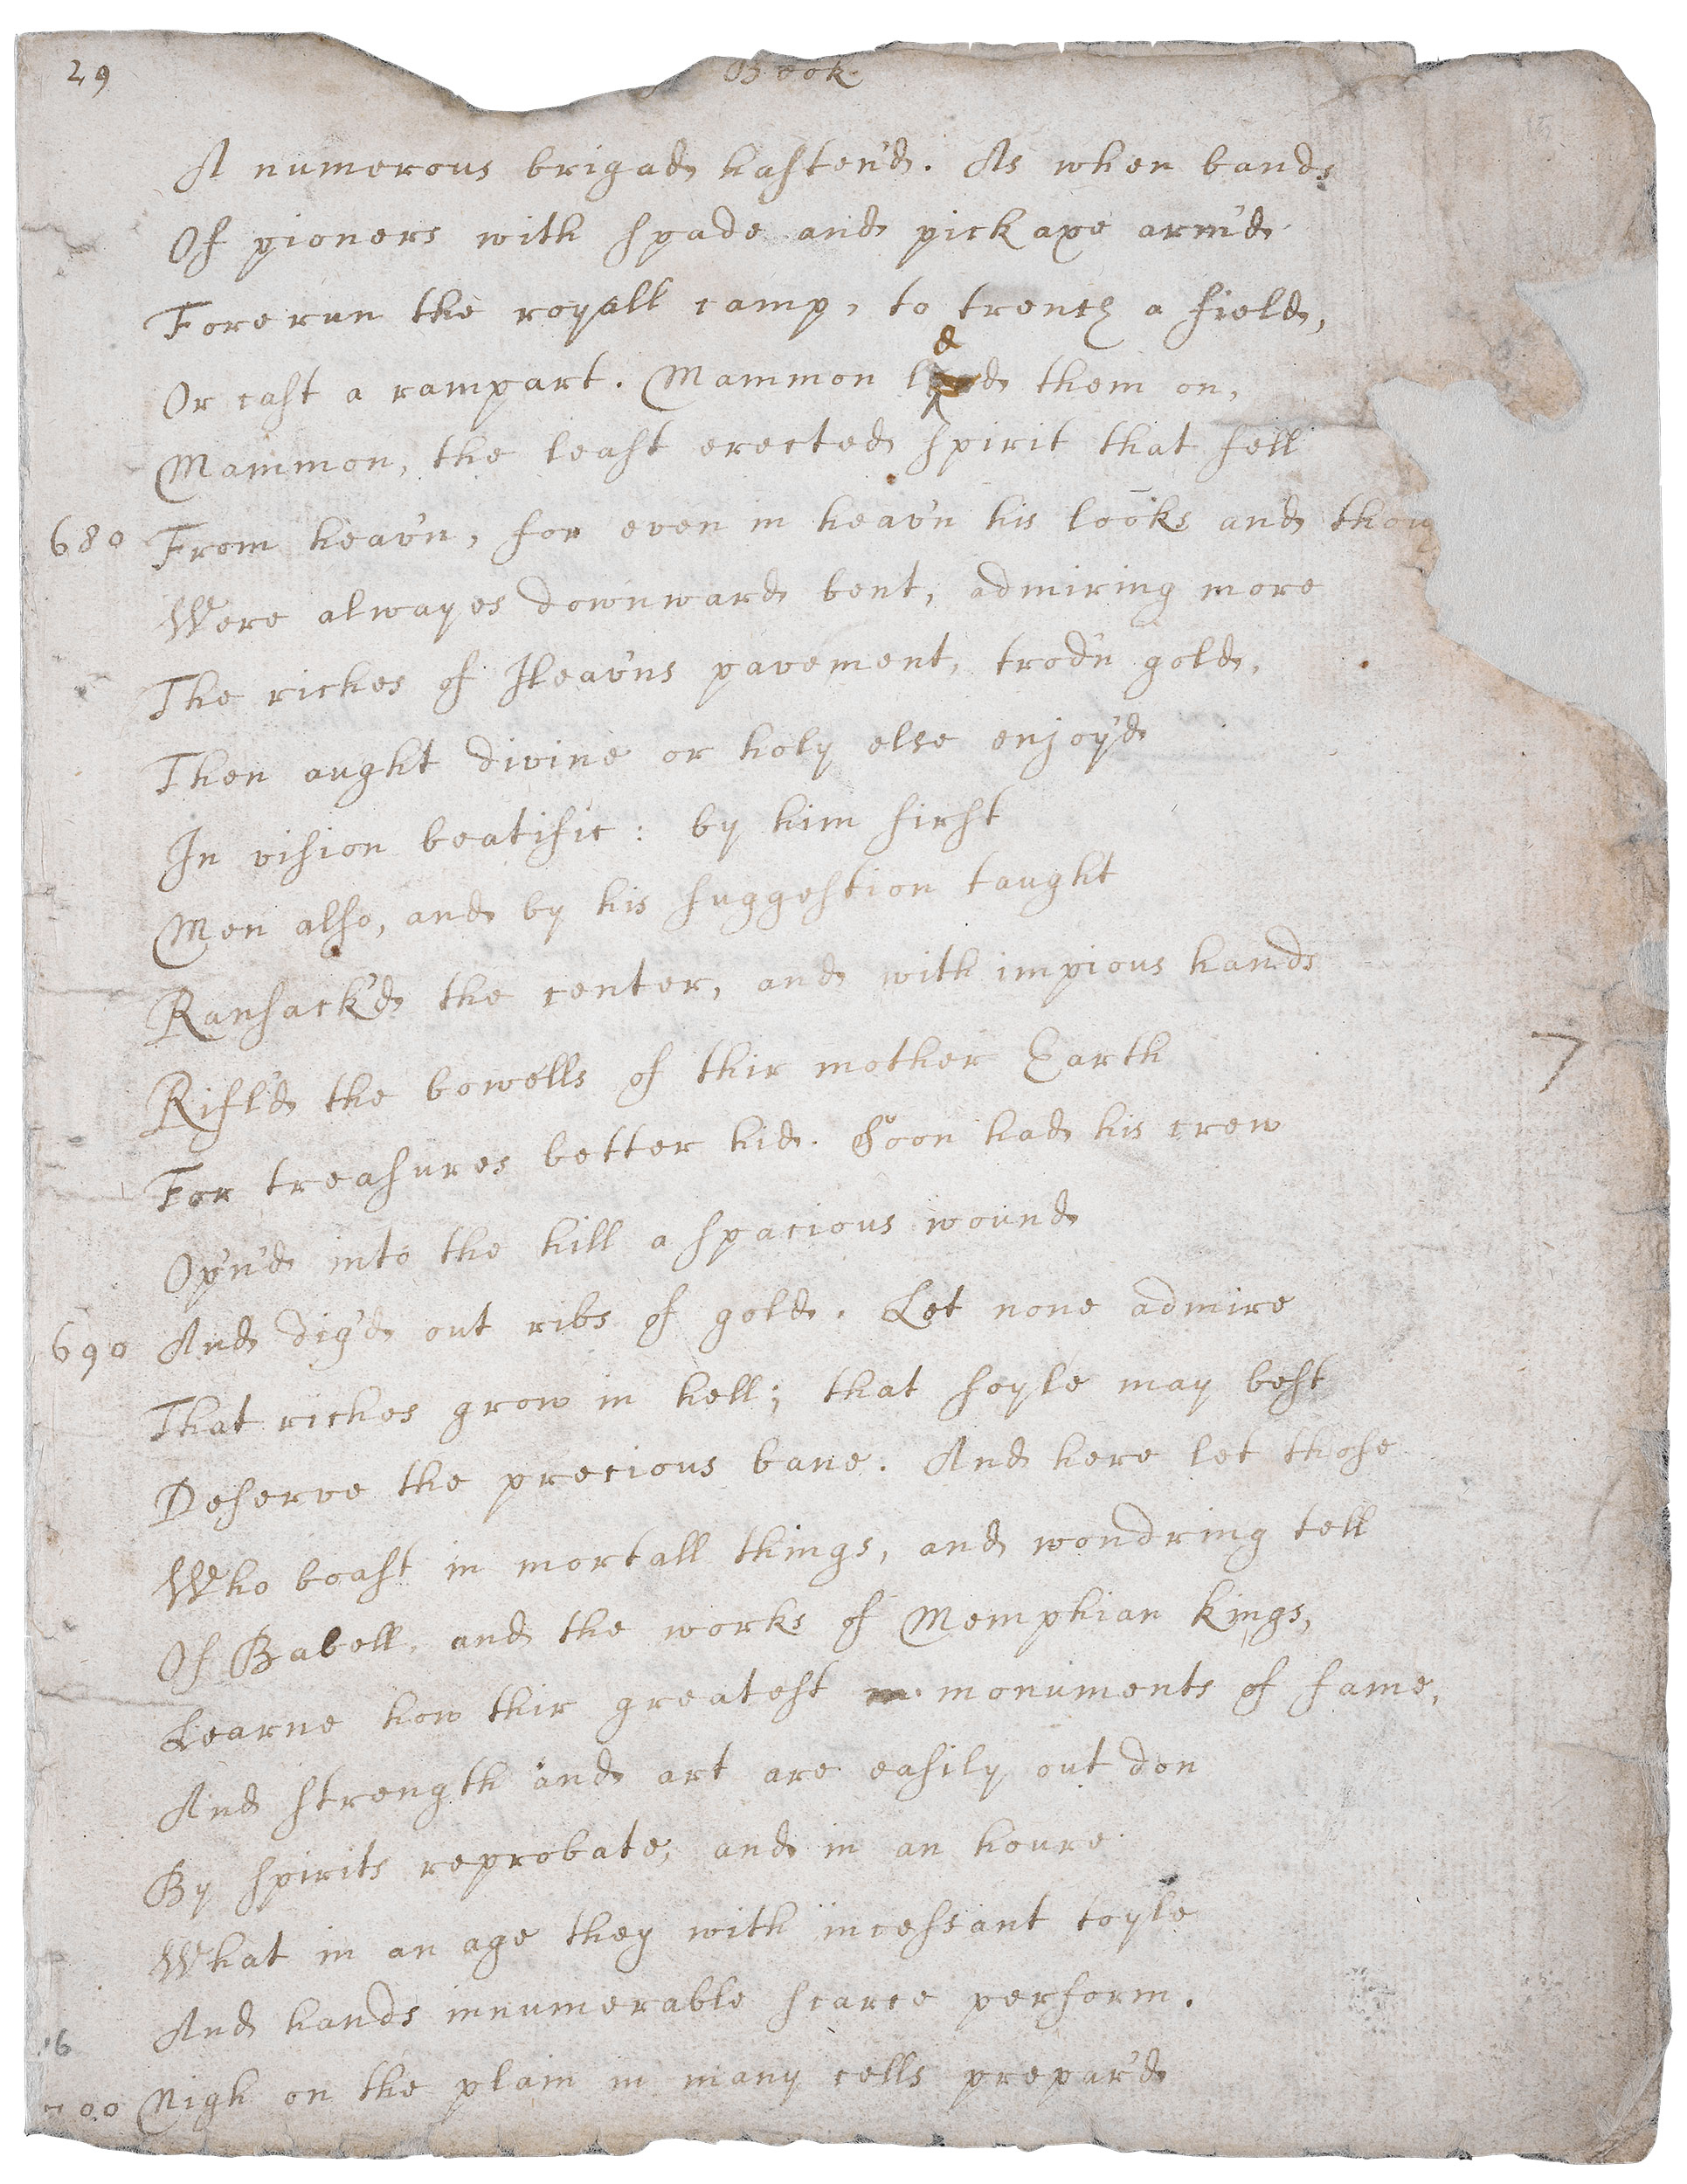 29
Book
A numerous brigad hasten'd. As when bands
Of pioners with spade and pickaxe arm'd
Forerun the royall camp, to trench a field,
Or cast a rampart. Mammon led them on,
Mammon, the least erected spirit that fell
680 From heav'n, for even in heav'n his looks and thoug
Were alwayes downward bent, admiring more
The riches of Heav'ns pavement, trod'n gold,
Then aught divine or holy else enjoy'd
In vision beatific: by him first
Men also, and by his suggestion taught
Ransack'd the center, and with impious hands
Rifl'd the bowells of thir mother Earth
For treasures better hid. Soon had his crew
Op'n'd into the hill a spacious wound
690 And dig'd out ribs of gold. Let none admire
That riches grow in hell; that soyle may best
Deserve the precious bane. And here let those
Who boast in mortall things, and wondring tell
Of Babell, and the works of Memphian kings,
Learne how thir greatest monuments of fame,
And strength and art are easily out don
By spirits reprobate, and in an houre
What in an age they with incessant toyle
And hands innumerable scarce perform.
700 Nigh on the plain in many cells prepar'd